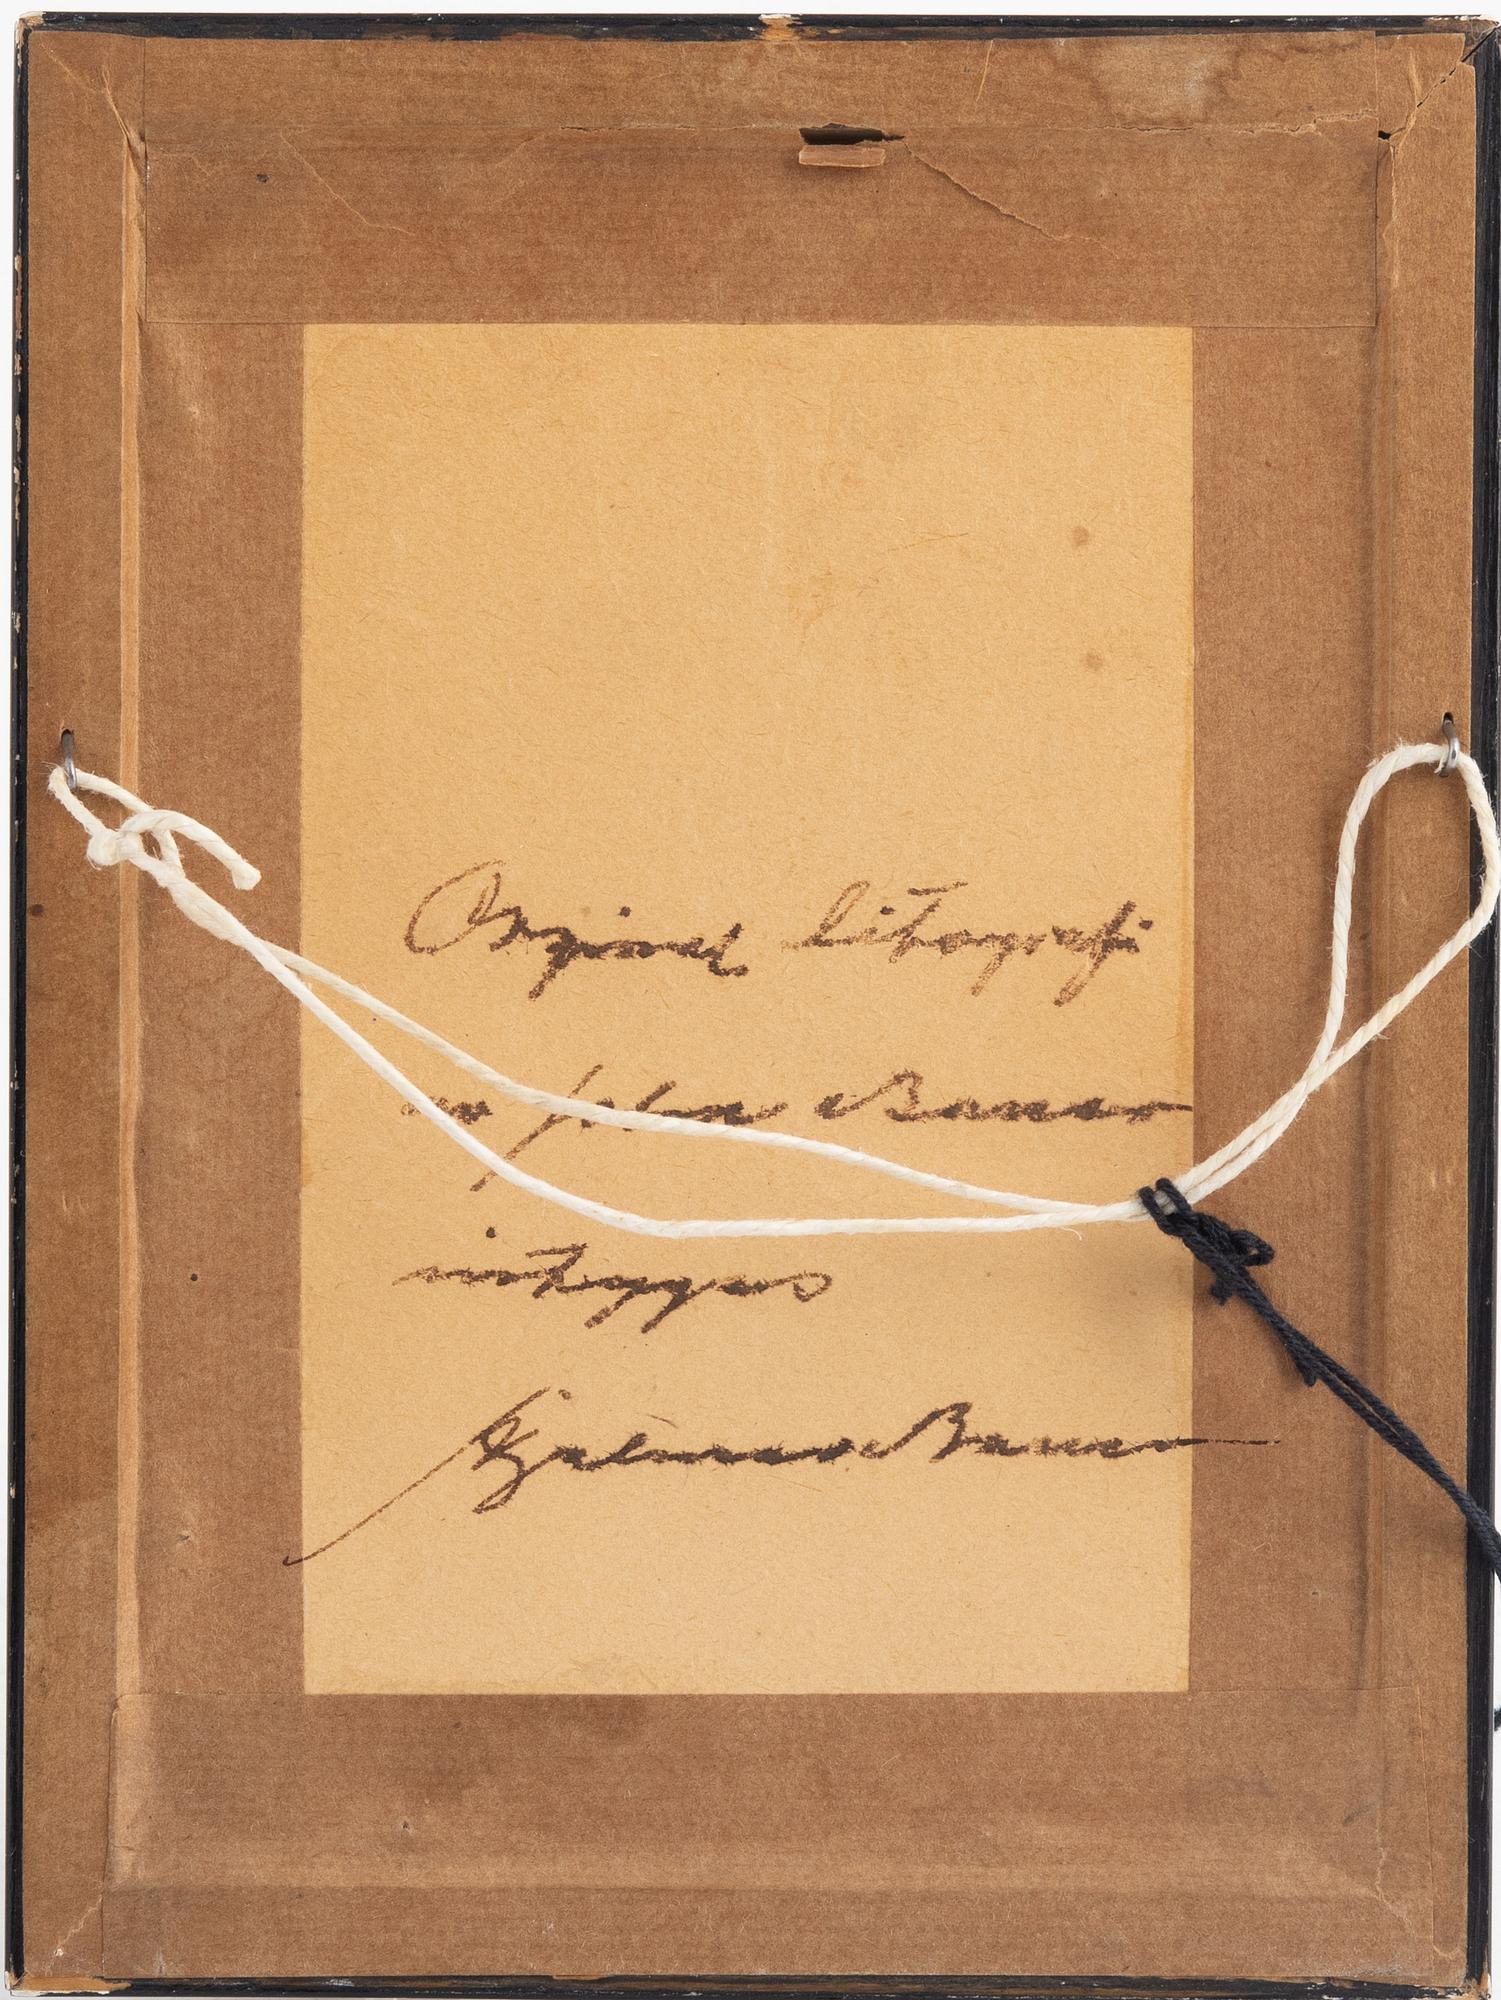 Orginal litografi
av John Bauer
intygas
Hjalmar Bauer